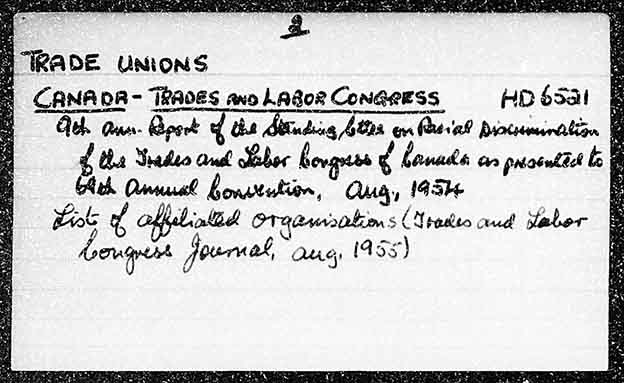 2
TRADE UNIONS
CANADA - TRADES AND LABOR CONGRESS HD6521
9th Ann. Report of the Standing Cttee on Racial Discrimination
of the Trades and Labor Congress of Canada as presented to
69th Annual Convention, Aug., 1954
Lists of affiliated organisations (Trades and Labor
Congress Journal, Aug. 1955)